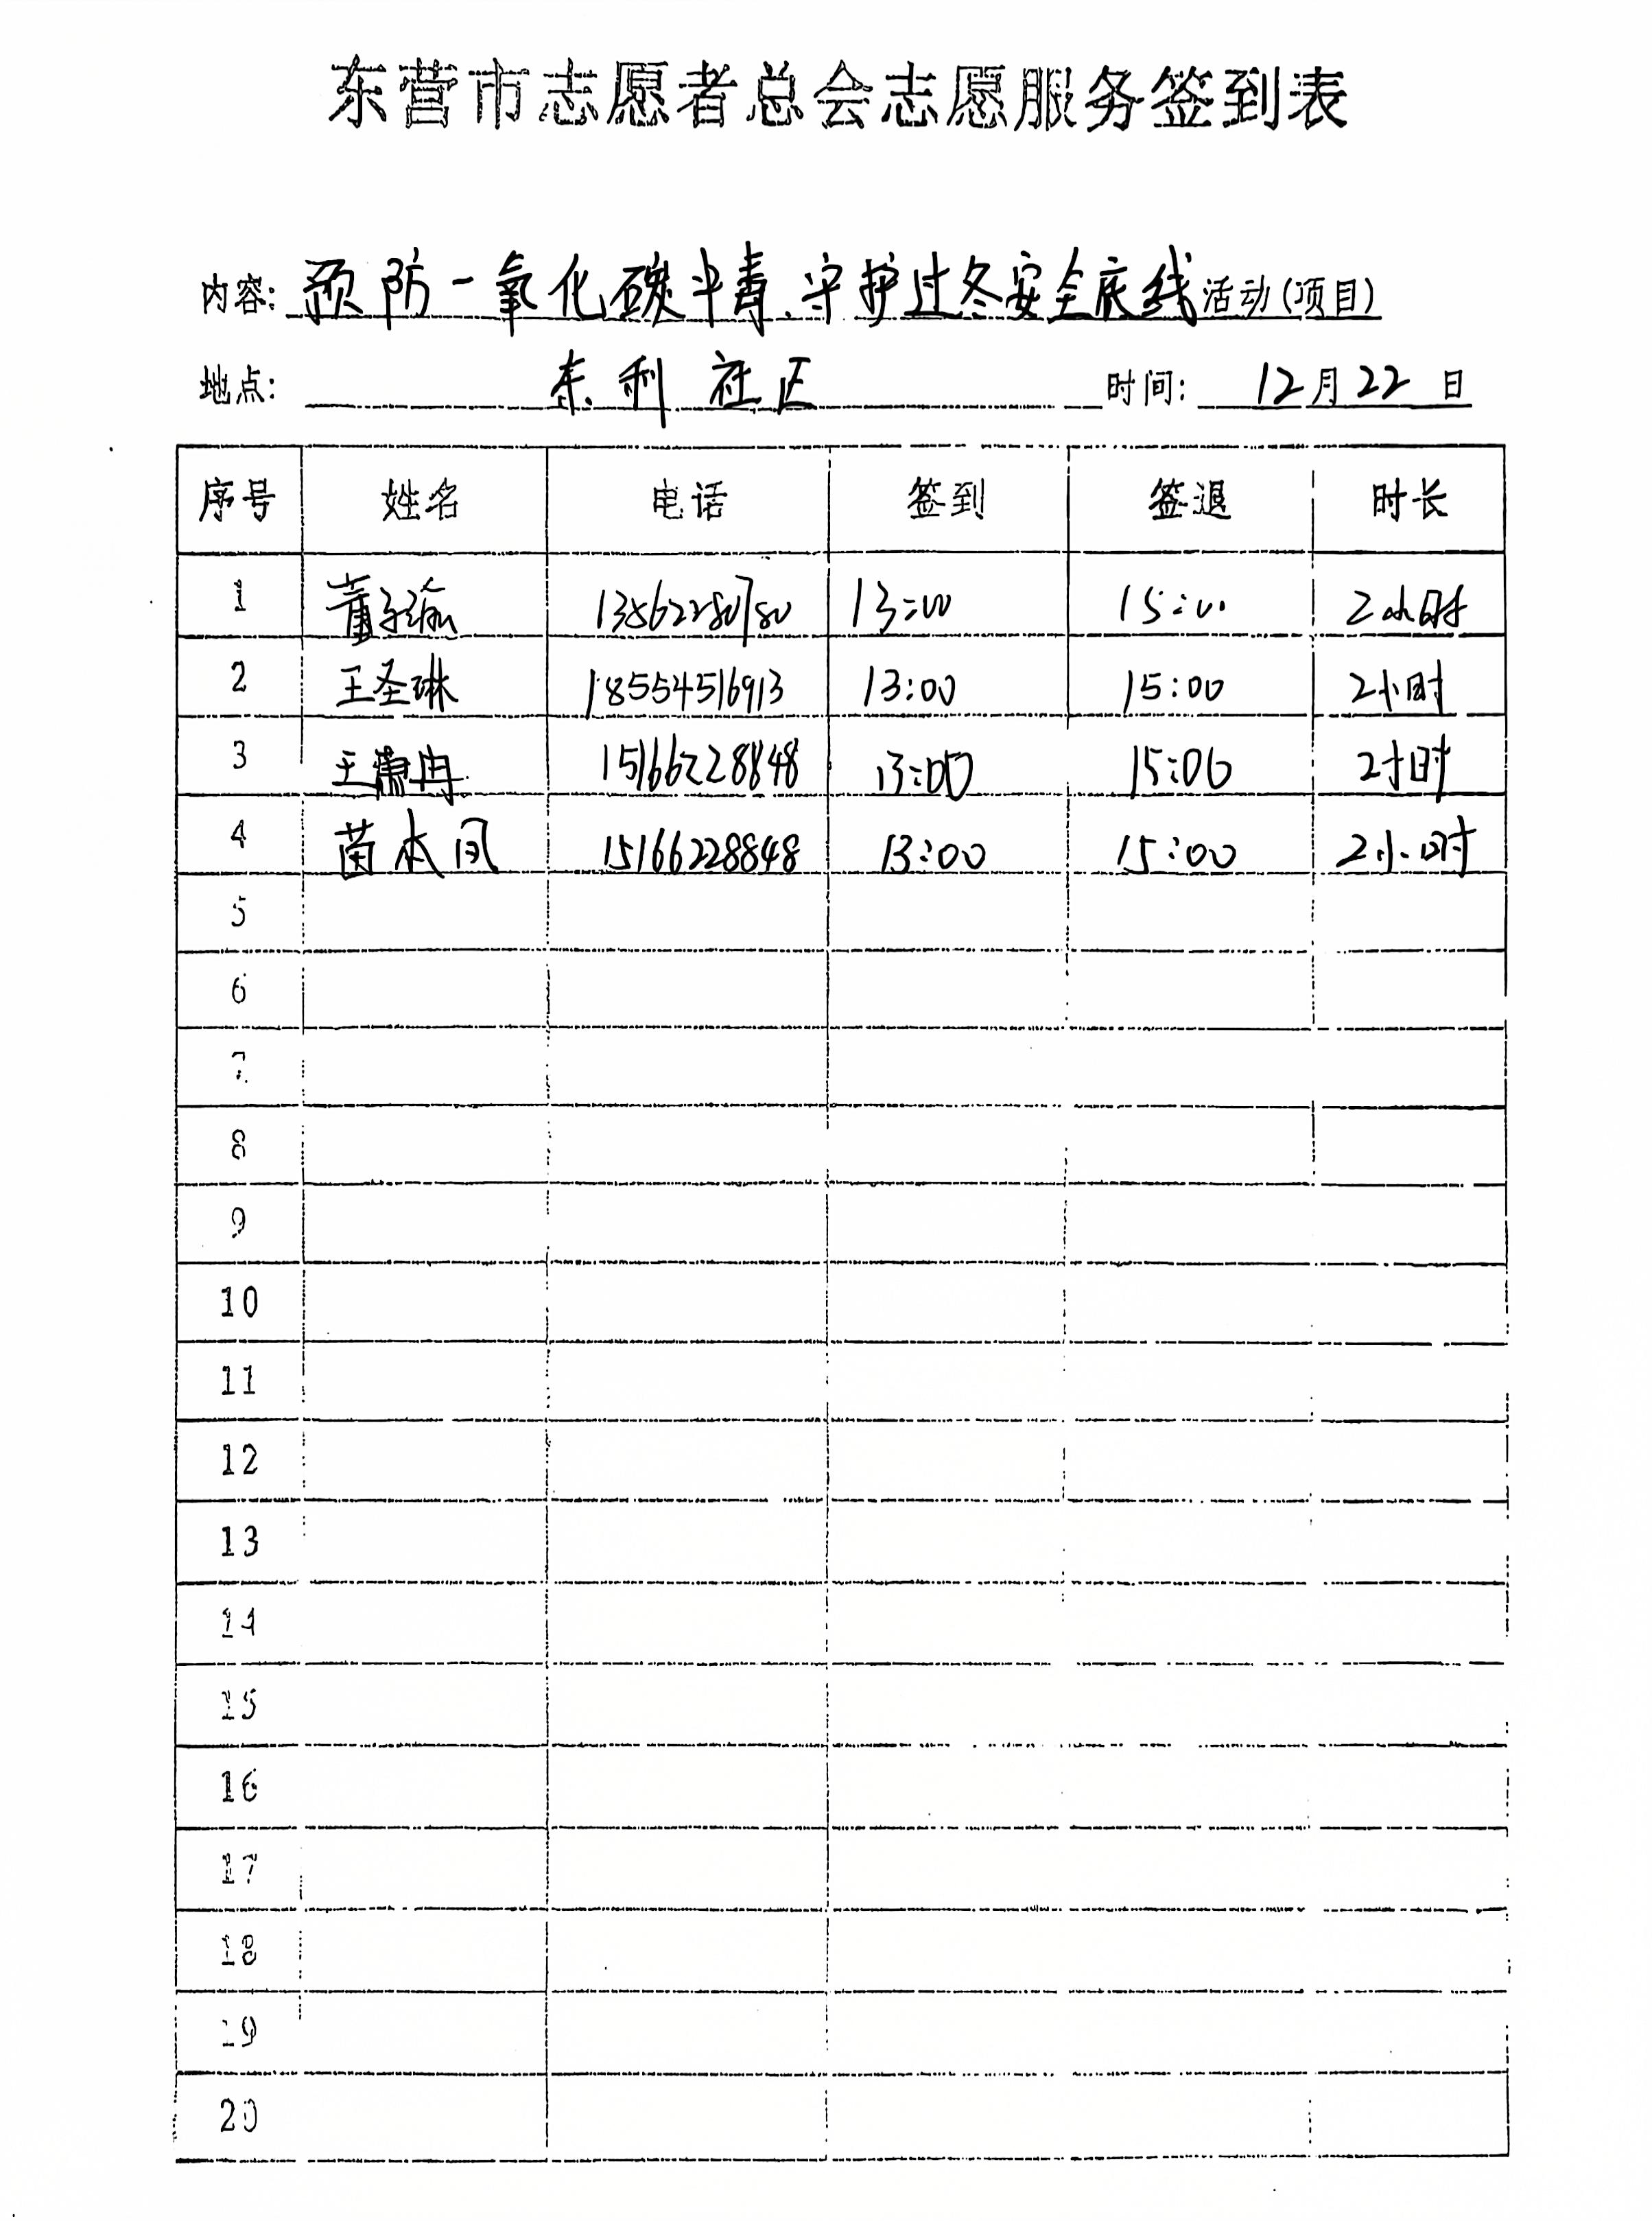 东营市志愿者总会志愿服务签到表
内容: 预防一氧化碳中毒、守护过冬安全底线 活动(项目)
地点: 东利社区 时间: 12月22日
序号 姓名 电话 签到 签退 时长
1 董子瑜 13:00 15:00 2小时
2 王圣琳 18554516913 13:00 15:00 2小时
3 王潇冉 15166228848 13:00 15:00 2小时
4 苗本凤 15166228848 13:00 15:00 2小时
5
6
7
8
9
10
11
12
13
14
15
16
17
18
19
20